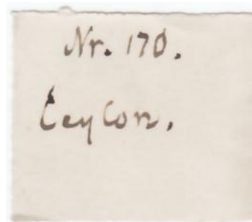 Nr. 170.
Ceylon.